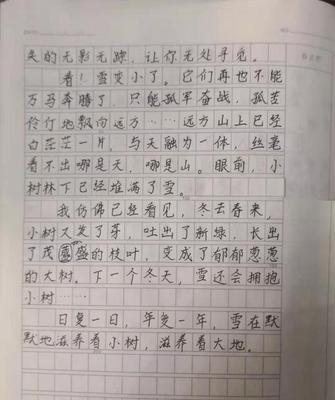 失的无影无踪，让你无处寻觅。
看！雪变小了。它们再也不能
万马奔腾了，只能孤军奋战，孤苦
伶仃地飘向远方……远方山上已经
白茫茫一片，与天融为一体，丝毫
看不出哪是天，哪是山。眼前，小
树林下已经堆满了雪。
我仿佛已经看见，冬去春来，
小树又发了芽，吐出了新绿，长出
了茂盛的枝叶，变成了郁郁葱葱
的大树。下一个冬天，雪还会拥抱
小树……
日复一日，年复一年，雪在默
默地滋养着小树，滋养着大地。